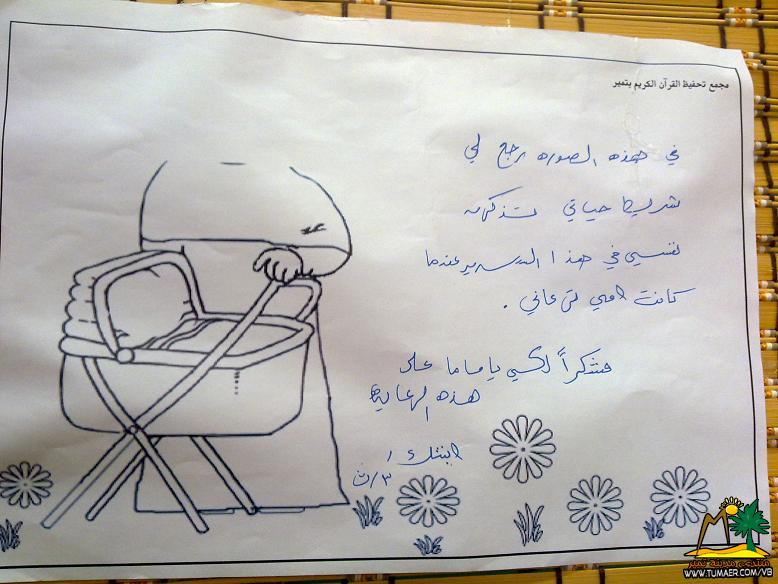 مجمع تحفيظ القرآن الكريم بتمير
في هذه الصوره رجع لي
شريط حياتي تذكرت
نفسي في هذا السرير عندما
كانت امي ترعاني .
فشكراً لكي يا ماما على
هذه الرعاية
ابنتك /
٣/ث
منتدى مدينة تمير
WWW.TUMAER.COM/VB